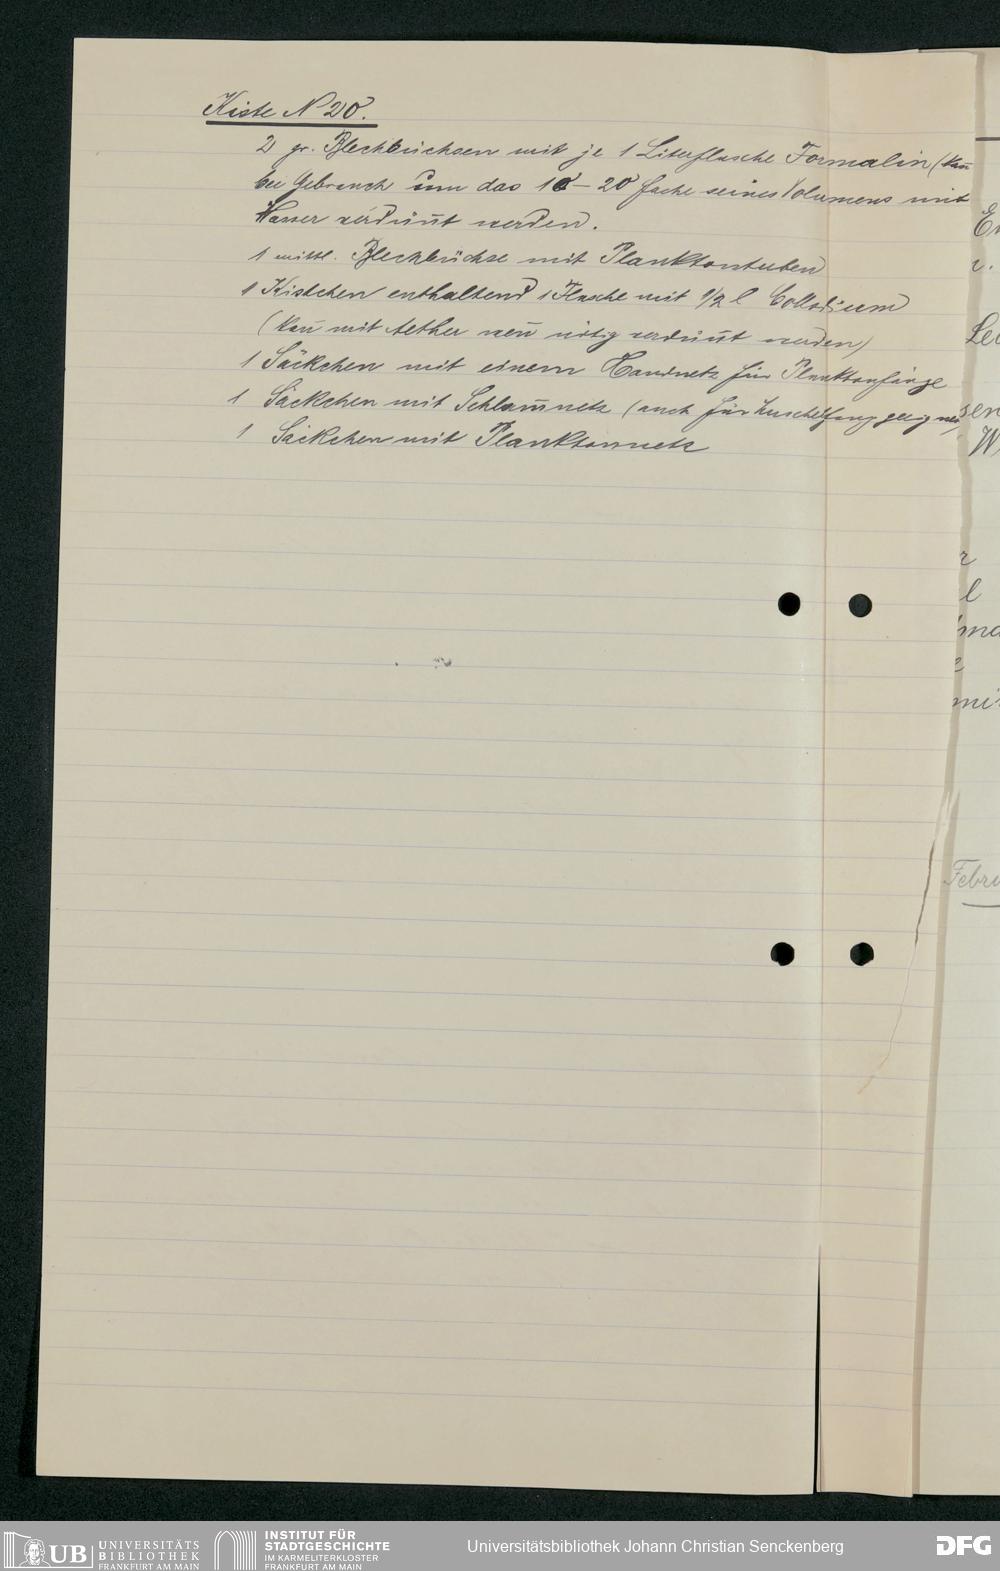 Kiste N 20.
2 gr. Blechbüchsen mit je 1 Literflasche Formalin (kan̄
bei Gebrauch um das 10-20 fache seines Volumens mit
Wasser verdün̄t werden.
1 mittl. Blechbüchse mit Planktontuben
1 Kistchen enthaltend 1 Flasche mit 1/2 l Collodium
(kan̄ mit Aether wen̄ nötig verdün̄t werden)
1 Säckchen mit einem Handnetz für Planktonfänge
1 Säckchen mit Schlam̄netz (auch für Muschelfang geeignet)
1 Säckchen mit Planktonnetz
Febru
UB UNIVERSITÄTS
BIBLIOTHEK
FRANKFURT AM MAIN
INSTITUT FÜR
STADTGESCHICHTE
IM KARMELITERKLOSTER
FRANKFURT AM MAIN
Universitätsbibliothek Johann Christian Senckenberg
DFG